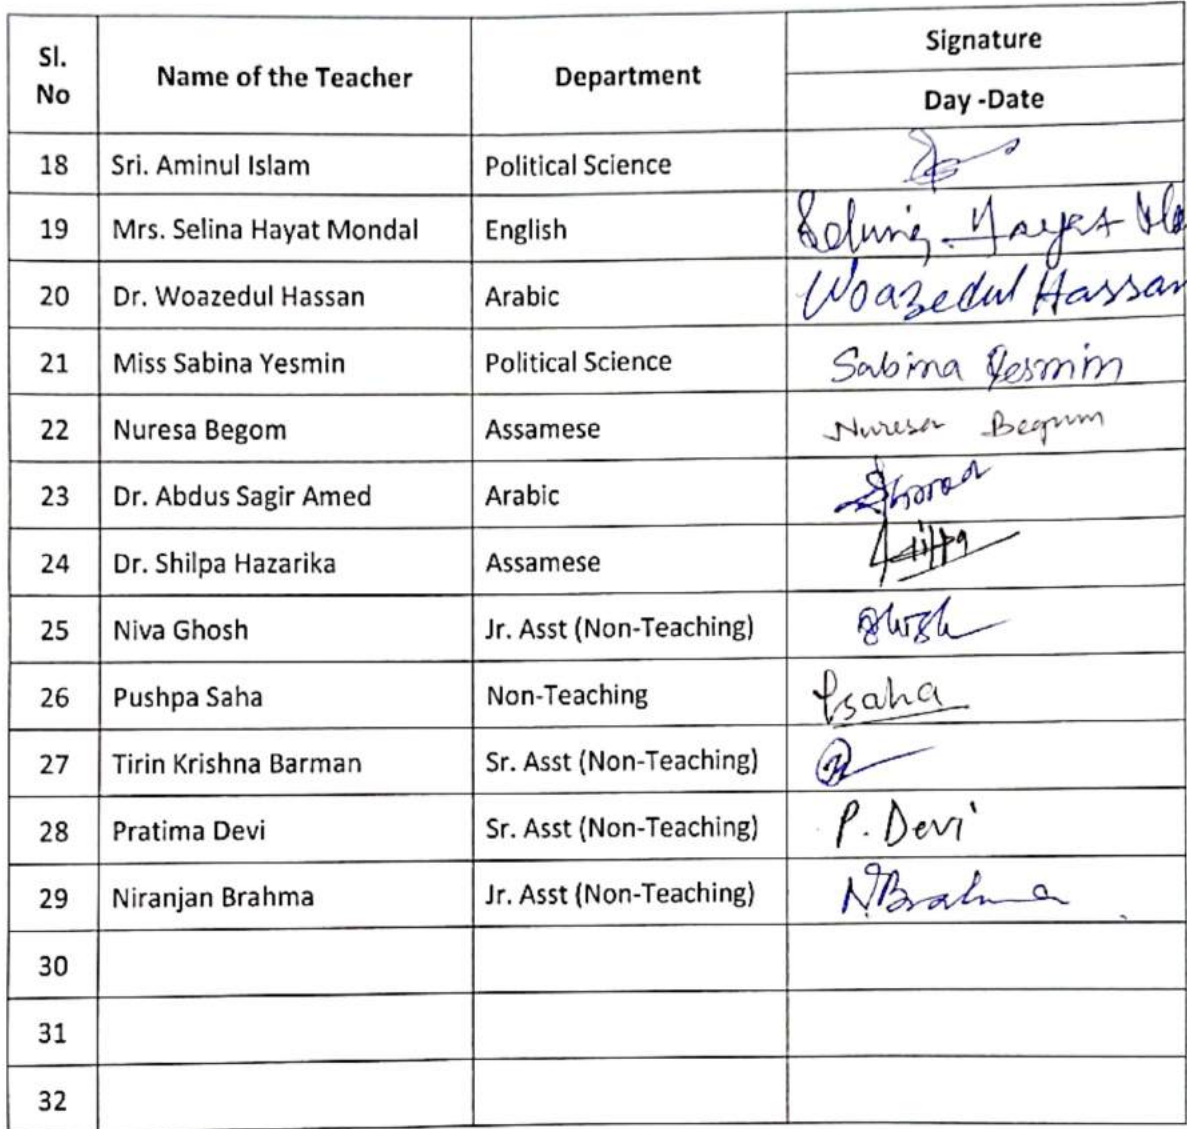 Sl. No Name of the Teacher Department Signature
Day -Date
18 Sri. Aminul Islam Political Science
19 Mrs. Selina Hayat Mondal English Selina Hayat
20 Dr. Woazedul Hassan Arabic Woazedul Hassan
21 Miss Sabina Yesmin Political Science Sabina Yesmin
22 Nuresa Begom Assamese Nuresa Begum
23 Dr. Abdus Sagir Amed Arabic
24 Dr. Shilpa Hazarika Assamese Shilpa
25 Niva Ghosh Jr. Asst (Non-Teaching) Ghosh
26 Pushpa Saha Non-Teaching Psaha
27 Tirin Krishna Barman Sr. Asst (Non-Teaching)
28 Pratima Devi Sr. Asst (Non-Teaching) P. Devi
29 Niranjan Brahma Jr. Asst (Non-Teaching) N Brahma
30
31
32